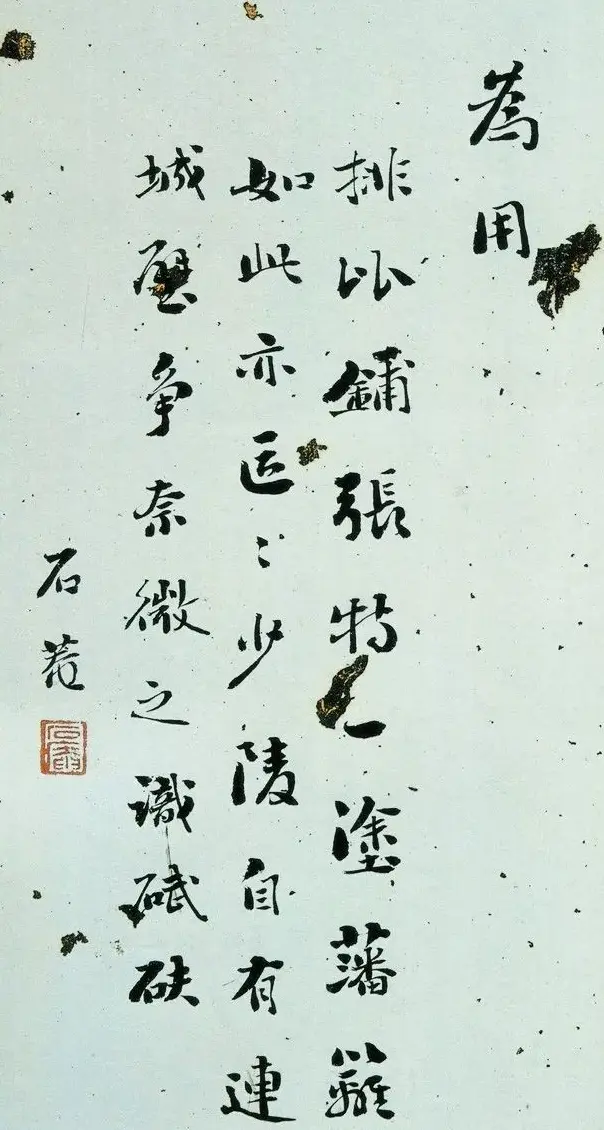 為用
排比鋪張特一塗藩籬
如此亦區〻少陵自有連
城璧争奈微之識碔砆
石菴
石菴